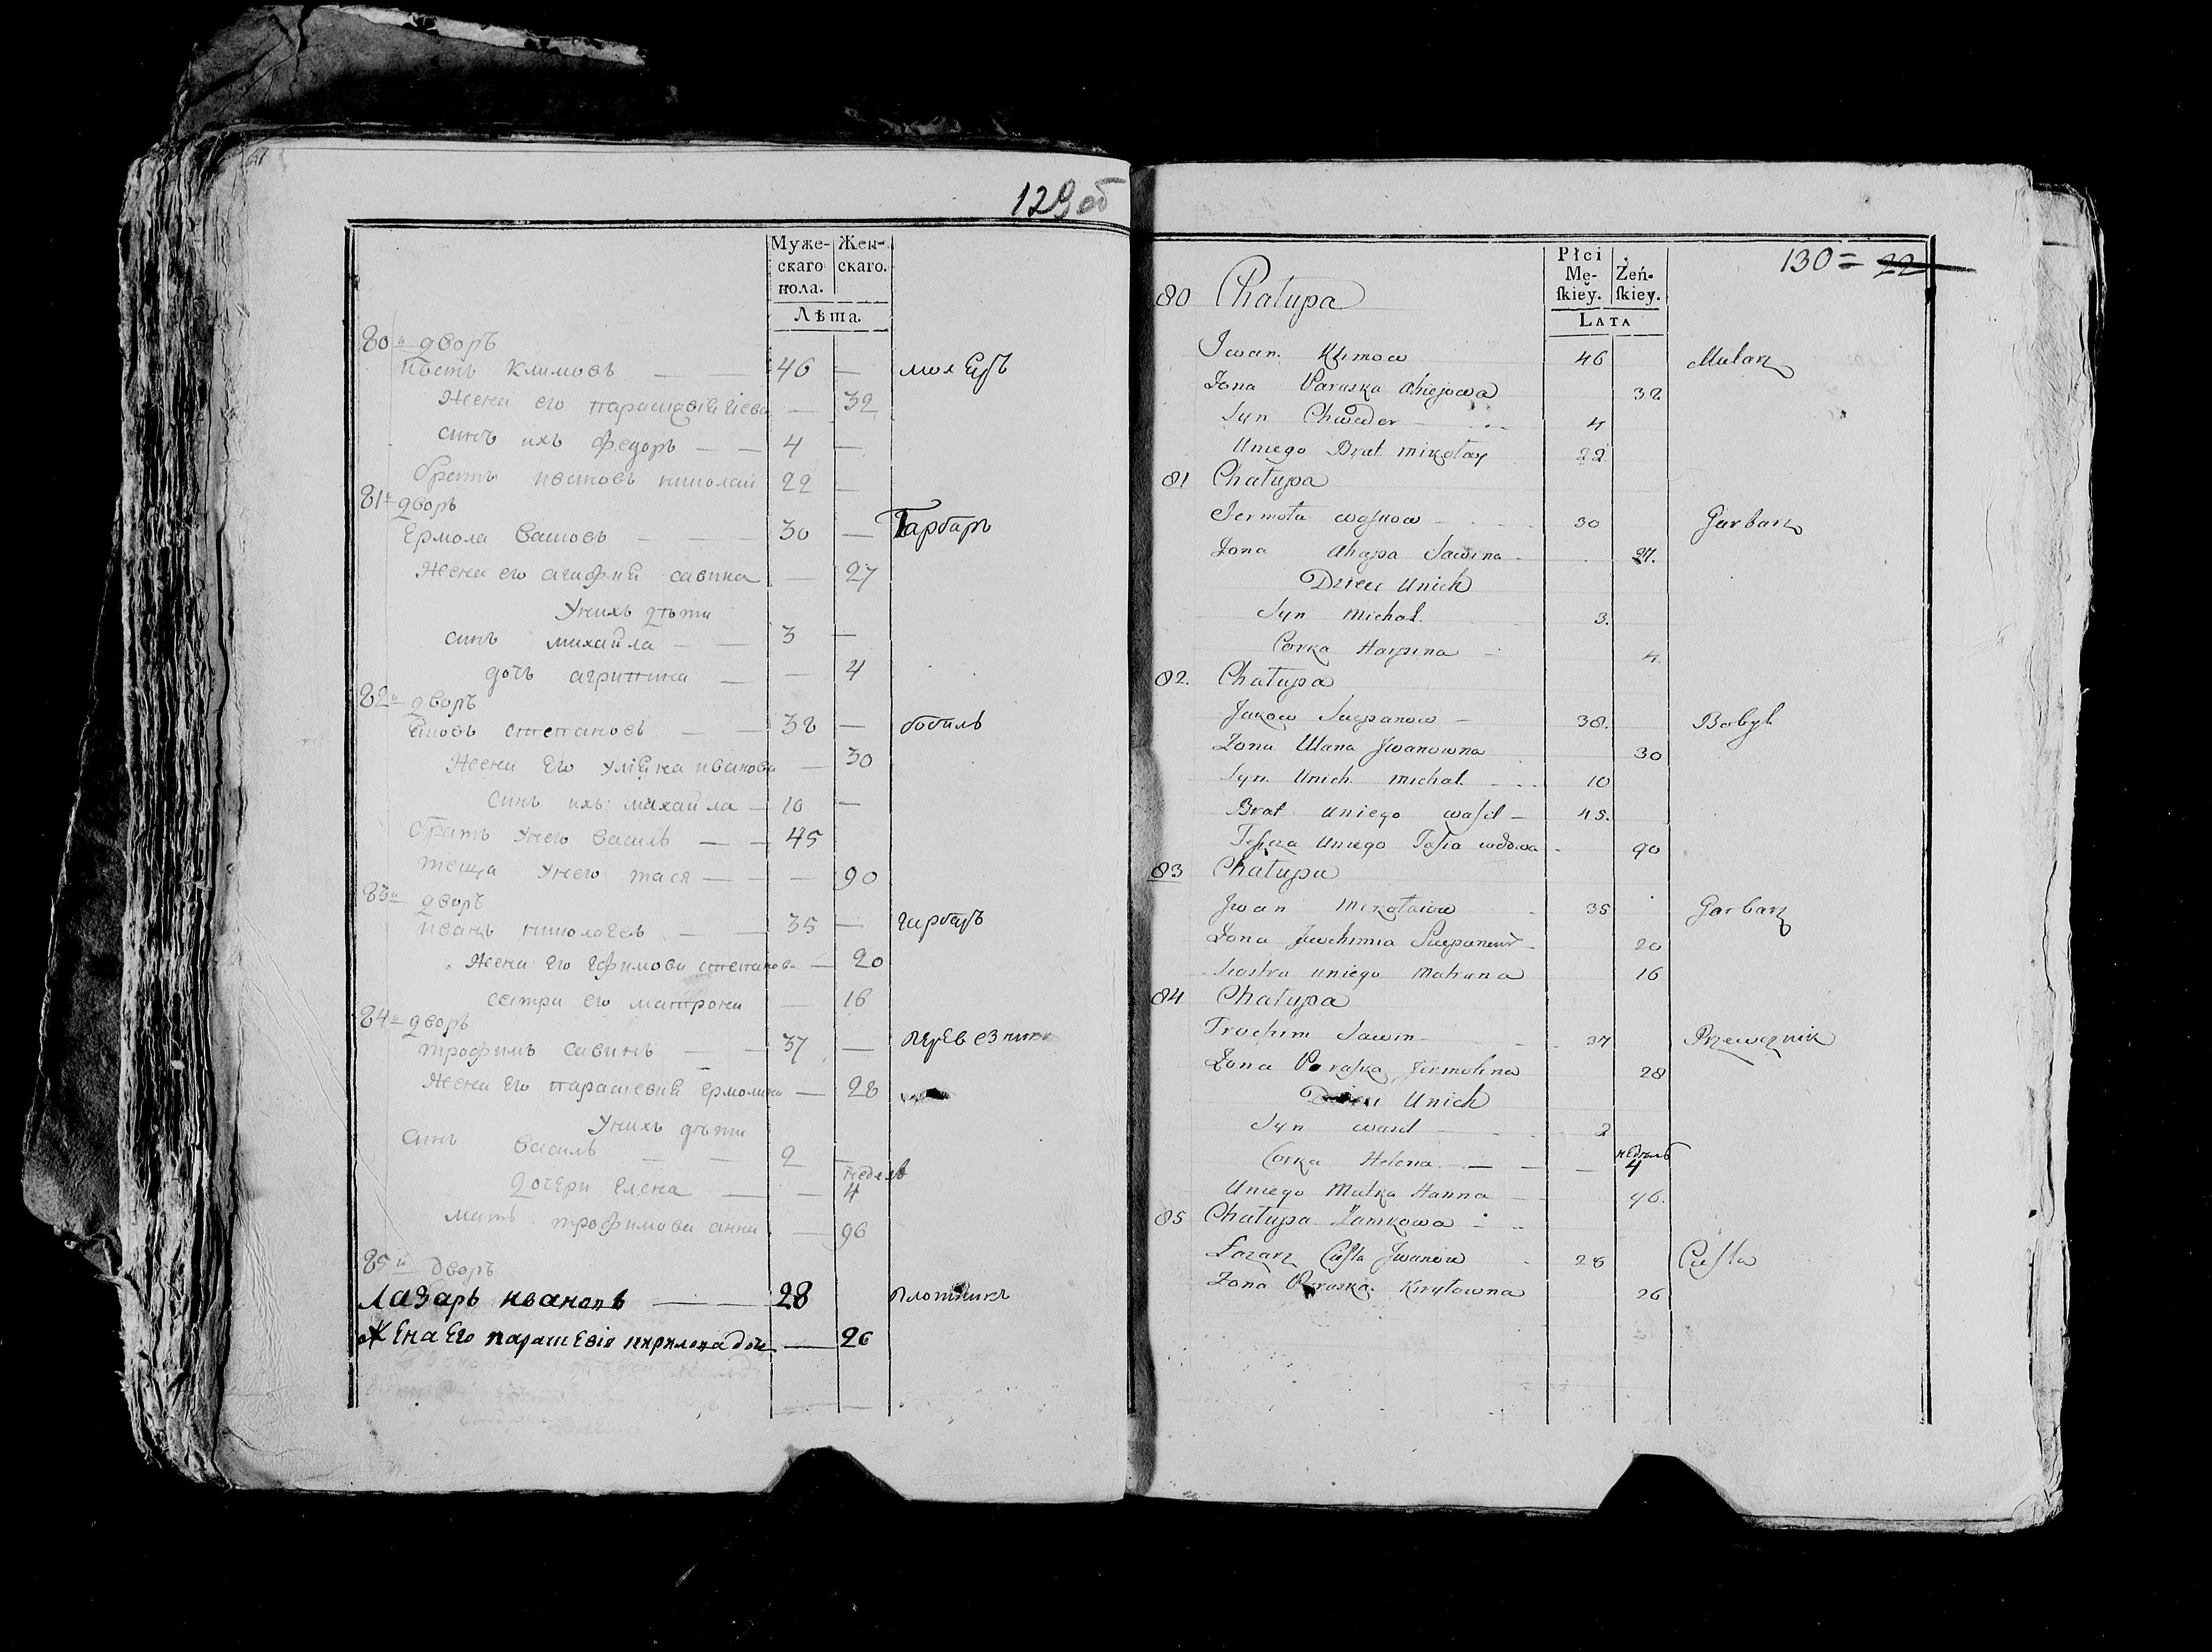 129 об
Муже-
скаго
пола.
Жен-
скаго.
Лѣта.
80 й дворъ
Иванъ Климовъ — 46 — маляръ
Жена его Параскевія — 32
синъ ихъ Федоръ — — 4 —
братъ Ивановъ Николай 22 —
81 й дворъ
Ермола — 30 — Гарбаръ
Жена его Агафия Савина — 27
Унихъ дѣти
синъ Михайла — 3 —
дочъ Агрипина — — 4
82 й дворъ
Яковъ Степановъ — 38 — бобиль
Жена Его Улияна Иванова — 30
Синъ ихъ Михайла — 10 —
братъ Унего Василь — — 45
теща Унего Тася — — 90
83 й дворъ
Иванъ Николаевъ — 35 — гарбаръ
Жена Его Ефимова Степанов. — 20
сестра его Матрона — 16
84 й дворъ
Трофимъ Савинъ — — 37 —
Жена Его Парашевия Ермолина — 28
Унихъ дѣти
Синъ Василь — — 2 —
недель
Дочери Елена — — 4
мать Трофимова Анна — 96
85 й дворъ
Лазарь Ивановъ — 28 Плотникъ
Жена Его Парашевія Кирилова доч. — 26
130 = 22
Płci
Mę-
skiey.
Żeń-
skiey.
Lata
80 Chałupa
Iwan Klimow 46 Malarz
Żona Paraska 32
Syn Chwedor 4
Uniego Brat Mikołay 22
81 Chałupa
Jermoła 30 Garbarz
Żona Ahapa Sawina 27.
Dzieci Unich
Syn Michał. 3.
Corka Harpina 4
82. Chałupa
Jakow Stepanow — 38. Bobyl
Żona Ulana Jwanowna 30
Syn Unich Michał 10
Brat Uniego Wasil — 45.
Teszcza Uniego Tasia wdowa 90
83 Chałupa
Jwan Mikołaiow 35 Garbarz
Żona Jewchimia 20
Siostra uniego Matruna 16
84 Chałupa
Trochim Sawin 37 Przewoznik
Żona Paraska Jermolina 28
Dzieci Unich
Syn Wasil 2
недель
Corka Helena — — — 4
Uniego Matka Hanna 96.
85 Chałupa Zamkowa
Łazarz Cieśla Jwanow 28 Cieśla
Żona Paraska Kiryłowna 26